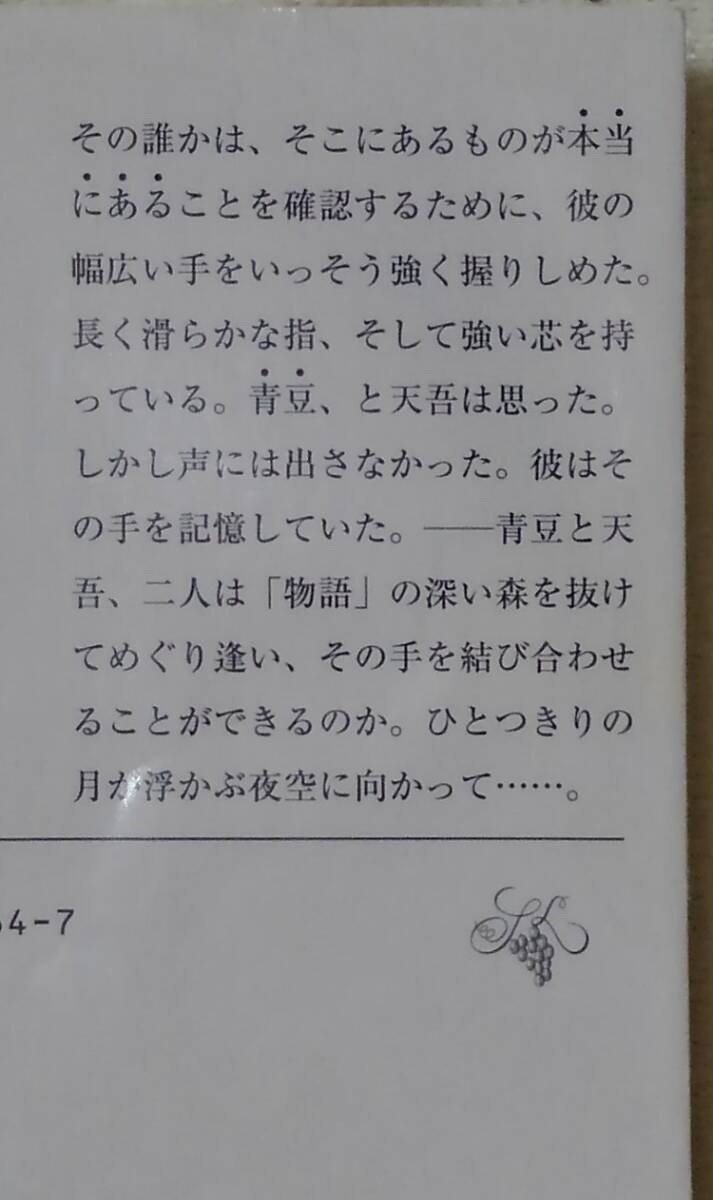 その誰かは、そこにあるものが本当
にあることを確認するために、彼の
幅広い手をいっそう強く握りしめた。
長く滑らかな指、そして強い芯を持
っている。青豆、と天吾は思った。
しかし声には出さなかった。彼はそ
の手を記憶していた。――青豆と天
吾、二人は「物語」の深い森を抜け
てめぐり逢い、その手を結び合わせ
ることができるのか。ひとつきりの
月が浮かぶ夜空に向かって……。
4-7